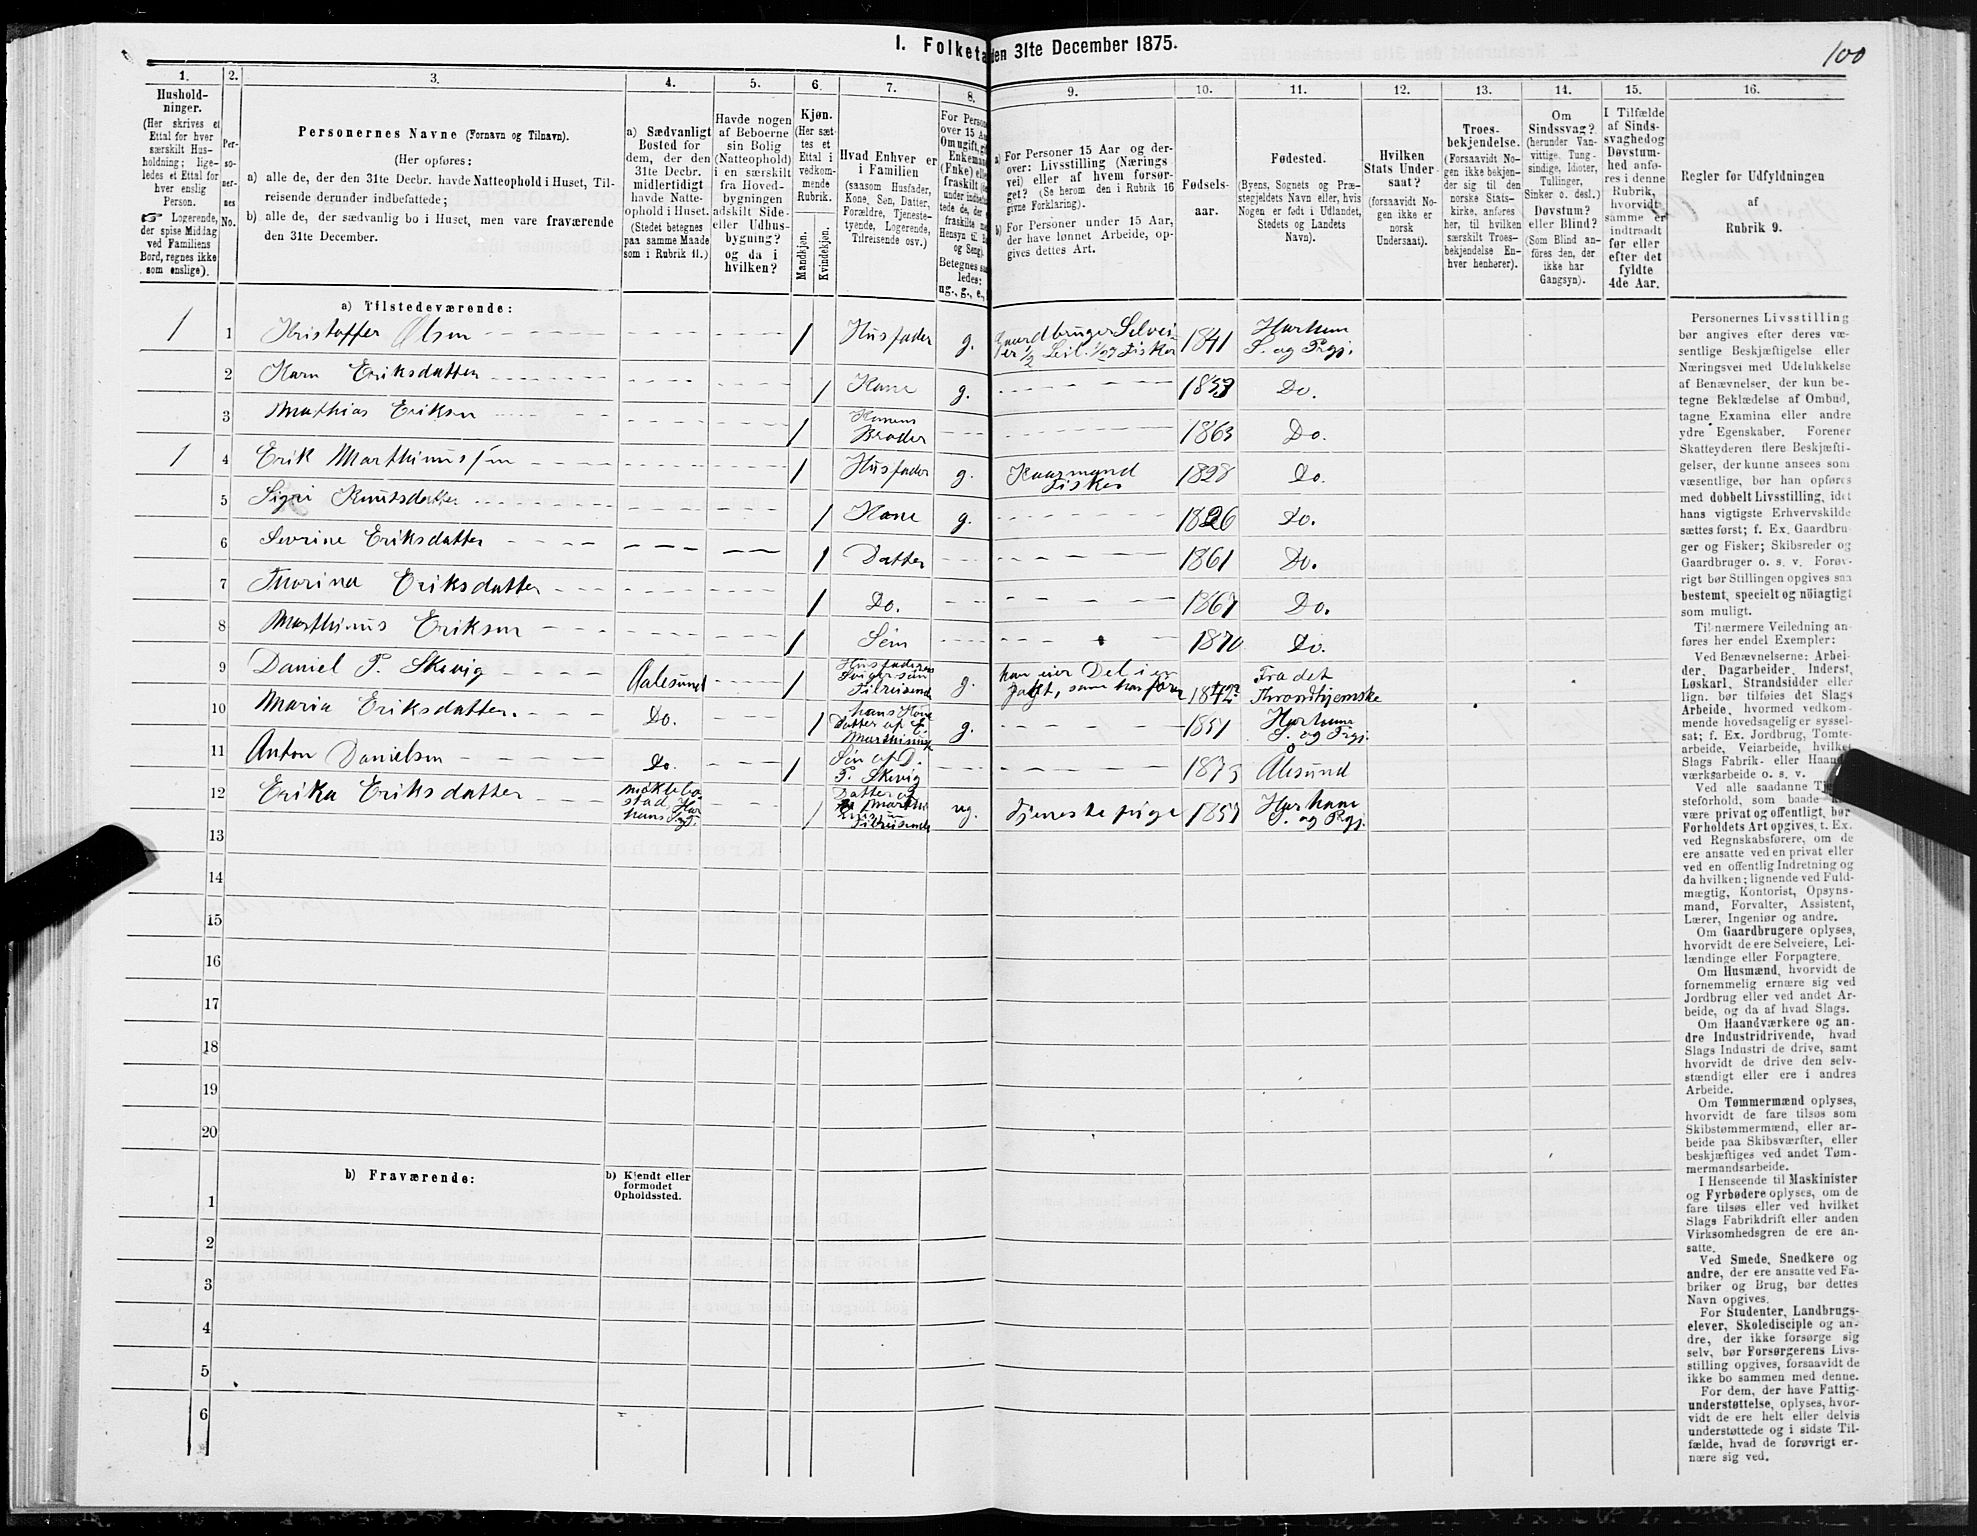 I. Folketæ
den 31te December 1875.
100
1.
2.
3.
4.
5.
6.
7.
8.
9.
10.
11.
12.
13.
14.
15.
16.
Hushold-
ninger.
(Her skrives et
Ettal for hver
særskilt Hus-
holdning; lige-
ledes et Ettal for
hver enslig
Person.
☞ Logerende,
der spise Middag
ved Familiens
Bord, regnes ikke
som enslige).
Per-
so-
ner-
nes
No.
Personernes Navne (Fornavn og Tilnavn).
(Her opføres:
a) alle de, der den 31te Decbr. havde Natteophold i Huset, Til-
reisende derunder indbefattede;
b) alle de, der sædvanlig bo i Huset, men vare fraværende
den 31te December.
a) Sædvanligt
Bosted for
dem, der den
31te Decbr.
midlertidigt
havde Natte-
ophold i Huset.
(Stedet betegnes
paa samme Maade
som i Rubrik 11.)
Havde nogen
af Beboerne
sin Bolig
(Natteophold)
i en særskilt
fra Hoved-
bygningen
adskilt Side-
eller Udhus-
bygning?
og da i
hvilken?
Kjøn.
(Her sæt-
tes et
Ettal i
vedkom-
mende
Rubrik.
Mandkjøn.
Kvindekjøn.
Hvad Enhver er
i Familien
(saasom Husfader,
Kone, Søn, Datter,
Forældre, Tjeneste-
tyende, Logerende,
Tilreisende osv.)
For Persone
over 15 Aar
Om ugift, gi
Enkeman
(Enke) elle
fraskilt (de
under indbefat
tede de, der
fraskilte me
Hensyn til B
og Seng).
Betegnes saa
ledes:
ug., g., e.,
a) For Personer 15 Aar og der-
over: Livsstilling (Nærings
vei) eller af hvem forsør-
get? (Se herom den i Rubrik 16
givne Forklaring).
b) For Personer under 15 Aar,
der have lønnet Arbeide, op-
gives dettes Art.
Fødsels-
aar.
Fødested.
(Byens, Sognets og Præ-
stegjeldets Navn eller, hvis
Nogen er født i Udlandet,
Stedets og Landets
Navn).
Hvilken
Stats Under-
saat?
(forsaavidt No-
gen ikke er
norsk
Undersaat).
Troes-
bekjendelse.
(Forsaavidt No-
gen ikke bekjen-
der sig til den
norske Stats-
kirke, anføres
her, til hvilken
særskilt Troes-
bekjendelse En-
hver henhører).
Om
Sindssvag?
(herunder Van-
vittige, Tung-
sindige, Idioter,
Tullinger,
Sinker o. desl.)
Døvstum?
eller Blind?
(Som Blind an-
føres den, der
ikke har
Gangsyn).
I Tilfælde
af Sinds-
svaghed og
Døvstum-
hed anfø-
res i denne
Rubrik,
hvorvidt
samme er
indtraadt
før eller
efter det
fyldte
4de Aar.
Regler for Udfyldningen
af
Rubrik 9.
a) Tilstedeværende:
1 1 Kristoffer Olsen 1 Husfader g. Gaardbruger Selvei
er 1/2 Leil. 1/2 og Fisker 1841 Harham
S. og Prgj.
2 Karn Eriksdatter 1 Kone g. 1853 Do.
3 Mathias Eriksen 1 Konens
Broder 1863 Do.
1 4 Erik Marthinussen 1 Husfader g. Kaarmand
Fisker 1828 Do.
5 Sigri Knutsdatter 1 Kone g. 1826 Do.
6 Sevrine Eriksdatter 1 Datter 1861 Do.
7 Thorina Eriksdatter 1 Do. 1867 Do.
8 Marthinus Eriksen 1 Søn 1870 Do.
9 Daniel P. Skevig Aalesund 1 Husfaderens
Svigersøn
Tilreisende g. han eier Del i en
Jagt, som han fører 1842 Fra det
Throndhjemske
10 Maria Eriksdatter. Do. 1 hans Kone
Datter af E.
Marthinus g. 1851 Harham
S. og Prgj.
11 Anton Danielsen Do. 1 Søn af D.
P. Skevig 1875 Ålesund
12 Erika Eriksdatter Mikkelbo-
stad, Har
hams 1 Datter af
Tilreisende ug. Tjenestepige 1857 Harham
S. og Prgj.
13
14
15
16
17
18
19
20
b) Fraværende:
b) Kjendt eller
formodet
Opholdssted.
1
2
3
4
5
6
Personernes Livsstilling
bør angives efter deres væ-
sentlige Beskjæftigelse eller
Næringsvei med Udelukkelse
af Benævnelser, der kun be-
tegne Beklædelse af Ombud,
tagne Examina eller andre
ydre Egenskaber. Forener
Skatteyderen flere Beskjæfti-
gelser, der kunne ansees som
væsentlige, bør han opføres
med dobbelt Livsstilling, idet
hans vigtigste Erhvervskilde
sættes først; f. Ex. Gaardbru-
ger og Fisker; Skibsreder og
Gaardbruger o. s. v. Forøv-
rigt bør Stillingen opgives saa
bestemt, specielt og nöiagtigt
som muligt.
Til nærmere Veiledning an-
føres her endel Exempler:
Ved Benævnelserne: Arbei-
der, Dagarbeider, Inderst,
Løskarl, Strandsidder eller
lign. bør tilføies det Slags
Arbeide, hvormed vedkom-
mende hovedsagelig er syssel-
sat; f. Ex. Jordbrug, Tomte-
arbeide, Veiarbeide, hvilket
Slags Fabrik- eller Haand-
værksarbeide o. s. v.
Ved alle saadanne Tje-
steforhold, som baade k
være privat og offentligt, bør
Forholdets Art opgives, t. Ex.
ved Regnskabsførere, om de
ere ansatte ved en privat eller
ved en offentlig Indretning og
da hvilken; lignende ved Fuld-
mægtig, Kontorist, Opsyns-
mand, Forvalter, Assistent,
Lærer, Ingeniør og andre.
Om Gaardbrugere oplyses,
hvorvidt de ere Selveiere, Lei-
lændinge eller Forpagtere.
Om Husmænd, hvorvidt de
fornemmelig ernære sig ved
Jordbrug eller ved andet Ar-
beide, og da af hvad Slags.
Om Haandværkere og an-
dre Industridrivende, hvad
Slags Industri de drive, samt
hvorvidt de drive den selv-
stændigt eller ere i andres
Arbeide.
Om Tømmermænd oplyses,
hvorvidt de fare tilsøs som
Skibstømmermænd, eller ar-
beide paa Skibsværfter, eller
beskjæftiges ved andet Tøm-
mermandsarbeide.
I Henseende til Maskinister
og Fyrbødere oplyses, om de
fare tilsøs eller ved hvilket
Slags Fabrikdrift eller anden
Virksomhedsgren de ere an-
satte.
Ved Smede, Snedkere og
andre, der ere ansatte ved Fa-
briker og Brug, bør dettes
Navn opgives.
For Studenter, Landbrugs-
elever, Skoledisciple og an-
dre, der ikke forsørge sig
selv, bør Forsørgerens Livs-
stilling opgives, forsaavidt de
ikke bo sammen med denne.
For dem, der have Fattig-
understøttelse, oplyses, hvor-
vidt de ere helt eller delvis
understøttede og i sidste Til-
fælde, hvad de forøvrigt er-
nære sig ved.